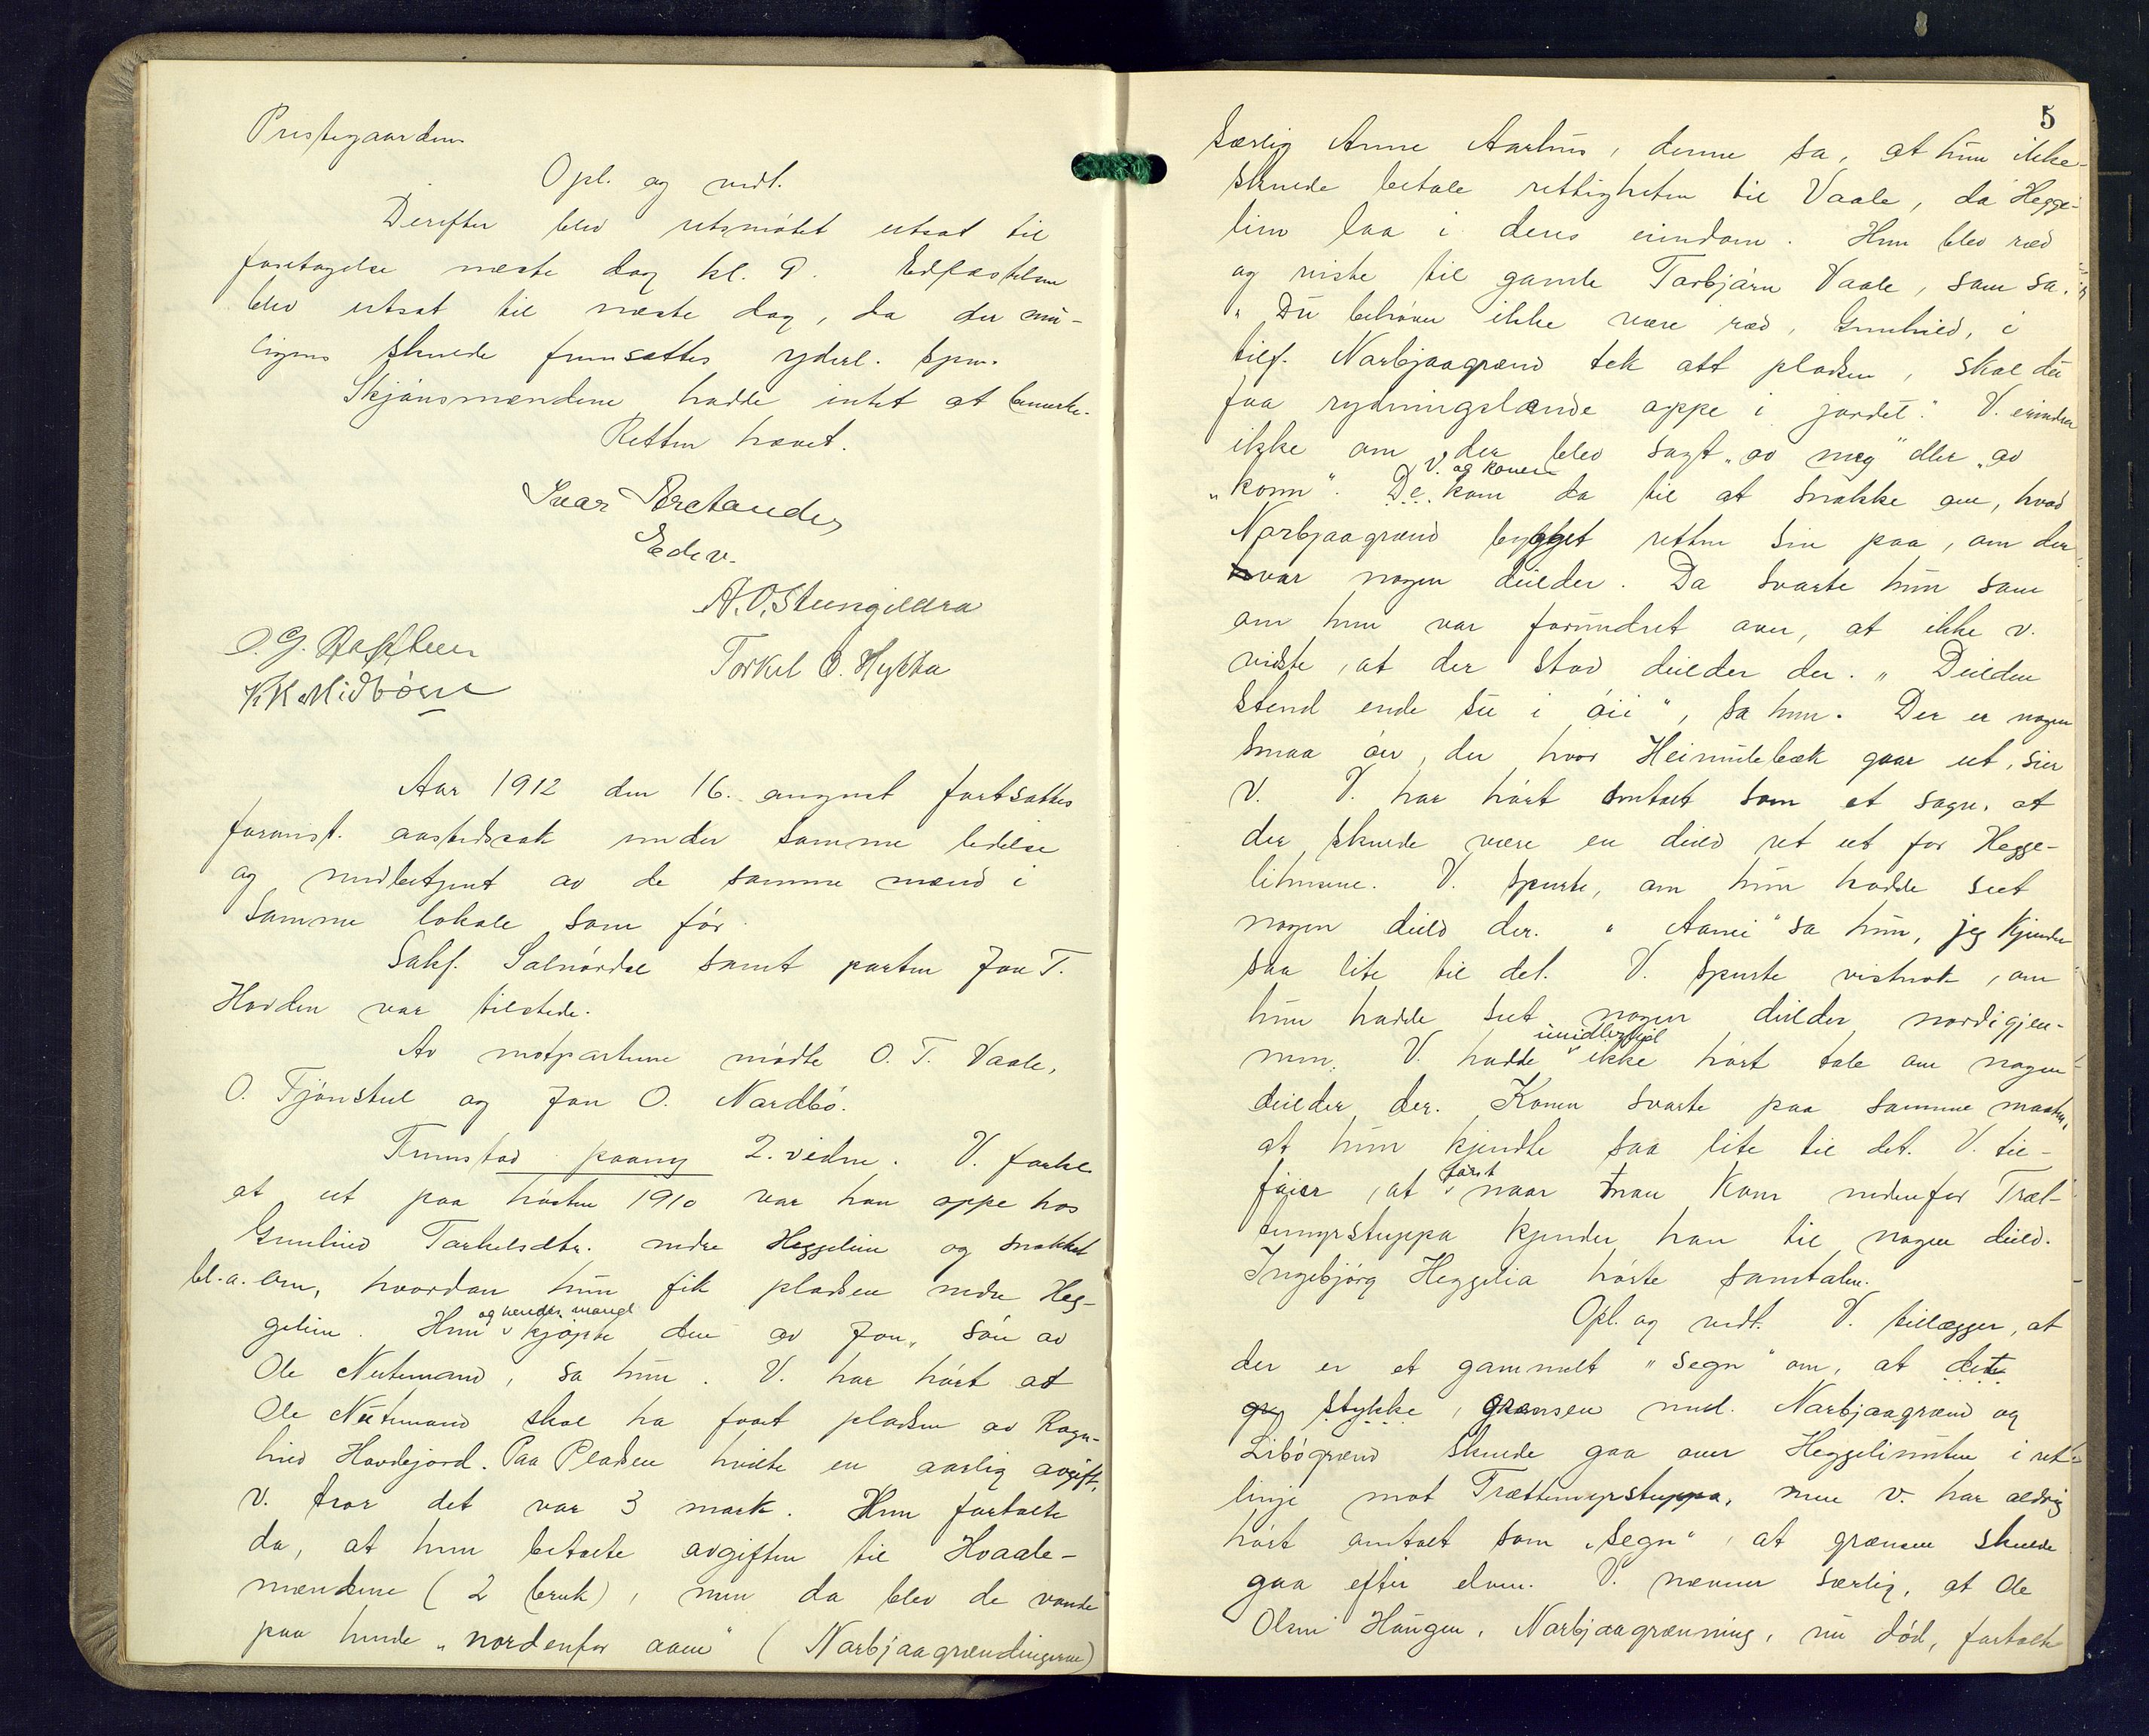 Prestegaarden.
Opl. og vedt.
Derefter blev retsmøtet utsat til
foretagelse næste dag kl. 9. Edfæstelsen
blev utsat til næste dag, da der mu-
ligens skulde fremsættes yderl. spm.
Skjønsmændene hadde intet at bemerke.
Retten hævet.
Ivar
Edev.
A. O. Steingildra
O. G.
Torkel O. Hytta
K K Midbøen
Aar 1912 den 16. august fortsattes
foranst. aastedssak under samme ledelse
og medbetjent av de samme mænd i
samme lokale som før.
Sakf. Solnørdal samt parten Jon T.
Hovden var tilstede.
Av motpartene mødte O. T. Vaale,
O. Tjønstul og Jon O. Nordbø.
Fremstod paany 2. vidne. V. forkl.
at ut paa høsten 1910 var han oppe hos
Gunhild Torkelsdtr. nedre Heggelien og snakket
bl.a. om, hvordan hun fik pladsen nedre Heg-
og hendes mand
gelien. Hun kjøpte den av Jon, søn av
Ole Nutemand, sa hun. V. har hørt at
Ole Nutemand skal ha faat pladsen av Ragn-
hild Hovdejord. Paa Pladsen hvilte en aarlig avgift,
V. tror det var 3 mark. Hun fortalte
da, at hun betalte avgiften til Hvaale-
mændene (2 bruk), men da blev de vonde
paa hende "nordenfor aaen" (Narbjaagrændingerne)
5
særlig Anne Aarhus, denne sa, at hun ikke
skulde betale rettigheten til Vaale, da Hegge-
lien laa i deres eiendom. Hun blev ræd
og reiste til gamle Torbjørn Vaale, som sa:
"Du behøver ikke være ræd, Gunhild, i
tilf. Narbjaagrænd tek att pladsen, skal du
faa rydningslænde oppe i jordet." V. erindrer
ikke om der blev sagt "av meg" eller "av
V. og konen
"konn". De kom da til at snakke om, hvad
Narbjaagrænd bygget retten sin paa, om der
var nogen deilder. Da svarte hun som
om hun var forundret over, at ikke v.
vidste, at der stod deilder der. "Deilden
stend ende su i øii", sa hun. Der er nogen
smaa øier, der hvor Heimulebæk gaar ut, sier
V. V. har hørt omtalt som et sagn, at
der skulde være en deild ret ut for Hegge-
lihusene. V. spurte, om hun hadde seet
nogen deild der. "Aanei" sa hun, jeg kjender
saa lite til det. V. spurte vistnok, om
hun hadde seet nogen deilder nordigjen-
imidlertid
nem. V. hadde ikke hørt tale om nogen
deilder der. Konen svarte paa samme maaten,
at hun kjendte saa lite til det. V. til-
først
føier, at naar man kom nedenfor Træt-
temyrstuppa kjender han til nogen deild.
Ingebjørg Heggelia hørte samtalen.
Opl. og vedt. V. tillægger, at
der er et gammelt "segn" om, at dette
stykke, grænsen mel. Narbjaagrænd og
Libøgrænd skulde gaa over Heggelinuten i ret
linje mot Trættemyrstuppa, men v. har aldrig
hørt omtalt som "segn", at grænsen skulde
gaa efter elven. V. nævner særlig, at Ole
Olsen Haugen, Narbjaagrænning, nu død, fortalte